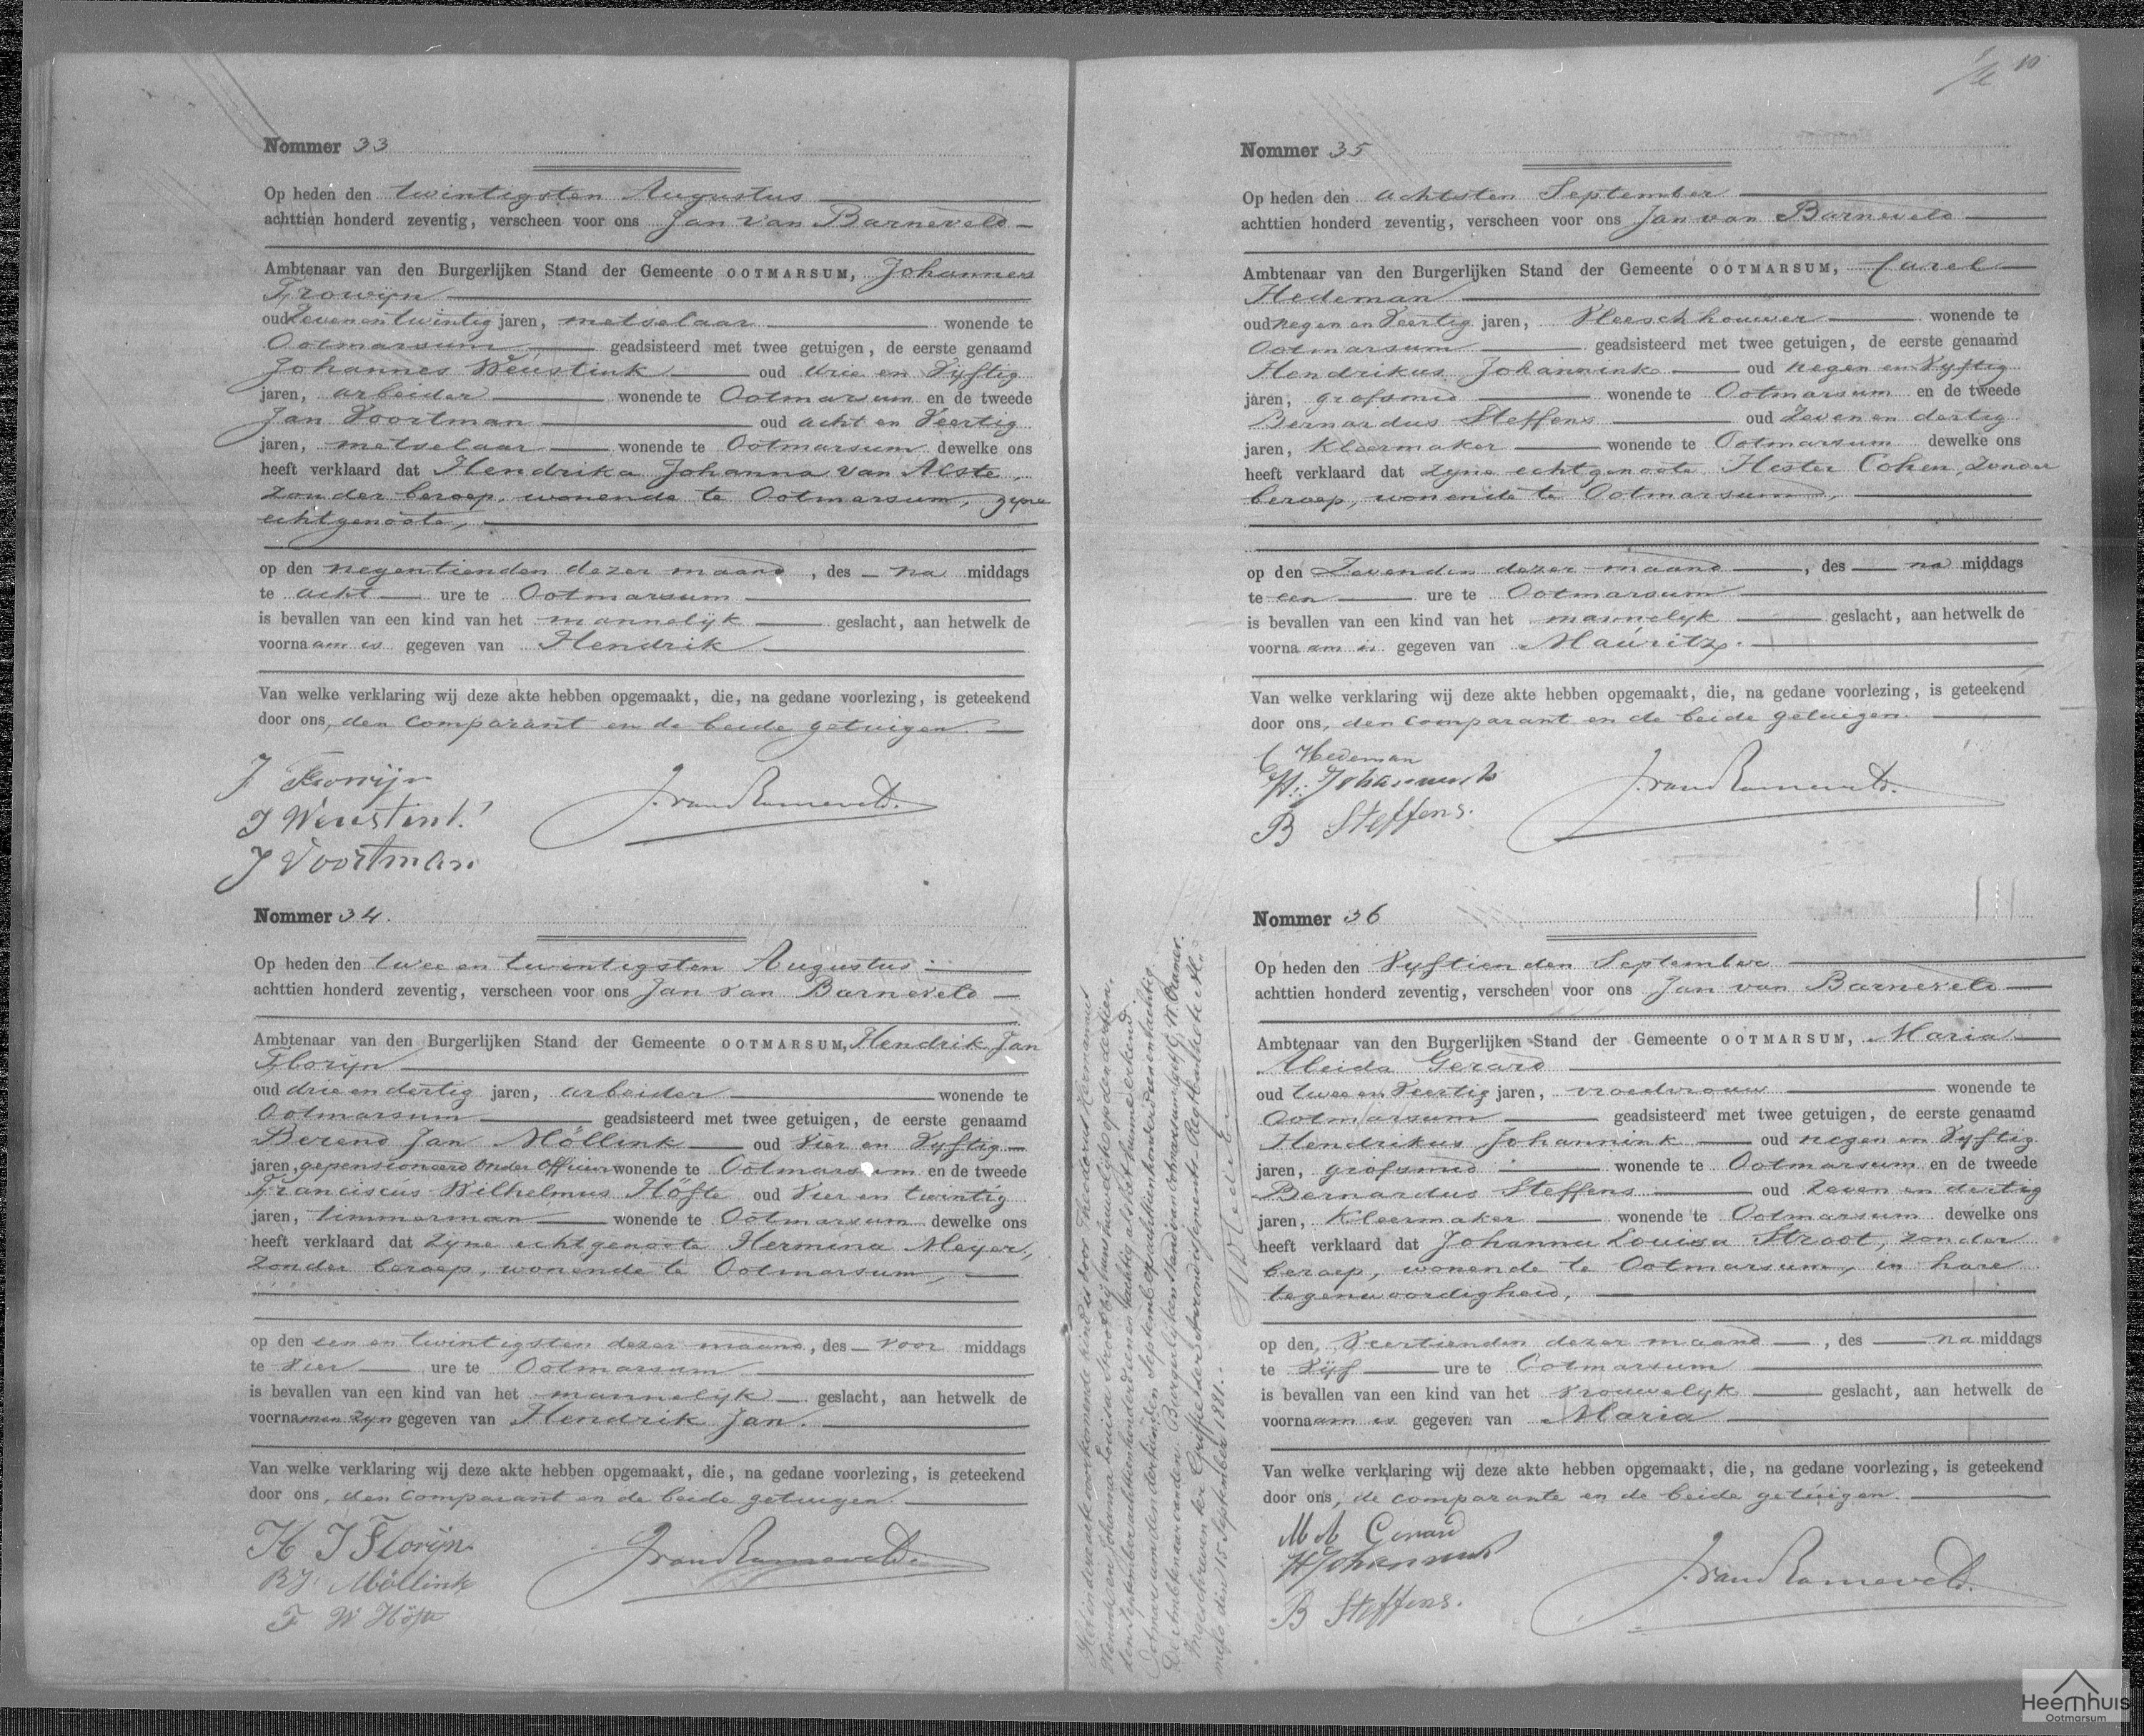 Nommer 33
Op heden den twintigsten Augustus
achttien honderd zeventig, verscheen voor ons Jan van Barneveld
Ambtenaar van den Burgerlijken Stand der Gemeente OOTMARSUM, Johannes
oud Zeven en twintig jaren, metselaar wonende te
Ootmarsum geadsisteerd met twee getuigen, de eerste genaamd
Johannes Weústink oud drie en Vyftig
jaren, arbeider wonende te Ootmarsum en de tweede
Jan Voortman oud acht en Veertig
jaren, metselaar wonende te Ootmarsum dewelke ons
heeft verklaard dat Hendrika Johanna van Alste,
zonder beroep, wonende te Ootmarsum, zyne
echtgenoote,
op den negentienden dezer maand, des na middags
te acht ure te Ootmarsum
is bevallen van een kind van het mannelyk geslacht, aan hetwelk de
voornaam is gegeven van Hendrik
Van welke verklaring wij deze akte hebben opgemaakt, die, na gedane voorlezing, is geteekend
door ons, den comparant en de beide getuigen.
J Weustink
J van Barneveld.
J Voortman
Nommer 34.
Op heden den twee en twintigsten Augustus
achttien honderd zeventig, verscheen voor ons Jan van Barneveld
Ambtenaar van den Burgerlijken Stand der Gemeente OOTMARSUM, Hendrik Jan
Florijn
oud drie en dertig jaren, arbeider wonende te
Ootmarsum geadsisteerd met twee getuigen, de eerste genaamd
Berend Jan Möllink oud Vier en Vyftig
jaren, gepensioneerd Onder Officier wonende te Ootmarsum en de tweede
Franciscús Wilhelmus Höfte oud Vier en twintig
jaren, timmerman wonende te Ootmarsum dewelke ons
heeft verklaard dat zyne echtgenoote Hermina Meyer,
zonder beroep, wonende te Ootmarsum,
op den een en twintigsten dezer maand, des voor middags
te Vier ure te Ootmarsum
is bevallen van een kind van het mannelyk geslacht, aan hetwelk de
voornamen zyn gegeven van Hendrik Jan.
Van welke verklaring wij deze akte hebben opgemaakt, die, na gedane voorlezing, is geteekend
door ons, den comparant en de beide getuigen.
H J Florijn
J van Barneveld.
BJ Möllink
F W Höfte
10
Nommer 35
Op heden den achtsten September
achttien honderd zeventig, verscheen voor ons Jan van Barneveld
Ambtenaar van den Burgerlijken Stand der Gemeente OOTMARSUM, Carel
Hedeman
oud negen en Veertig jaren, Vleeschhouwer wonende te
Ootmarsum geadsisteerd met twee getuigen, de eerste genaamd
Hendrikus Johannink oud negen en Vyftig
jaren, grofsmid wonende te Ootmarsum en de tweede
Bernardus Steffens oud Zeven en dertig
jaren, Kleermaker wonende te Ootmarsum dewelke ons
heeft verklaard dat zyne echtgenoote Hester Cohen, zonder
beroep, wonende te Ootmarsum,
op den Zevenden dezer maand, des na middags
te een ure te Ootmarsum
is bevallen van een kind van het mannelyk geslacht, aan hetwelk de
voornaam is gegeven van Maúritz.
Van welke verklaring wij deze akte hebben opgemaakt, die, na gedane voorlezing, is geteekend
door ons, den comparant en de beide getuigen.
C Hedeman
H: Johannink
J van Barneveld.
B Steffens.
Nommer 36
Op heden den Vyftienden September
achttien honderd zeventig, verscheen voor ons Jan van Barneveld
Ambtenaar van den Burgerlijken Stand der Gemeente OOTMARSUM, Maria
Aleida Gerard
oud twee en Veertig jaren, vroedvrouw wonende te
Ootmarsum geadsisteerd met twee getuigen, de eerste genaamd
Hendrikus Johannink oud negen en Vyftig
jaren, grofsmid wonende te Ootmarsum en de tweede
Bernardus Steffens oud Zeven en dertig
jaren, Kleermaker wonende te Ootmarsum dewelke ons
heeft verklaard dat Johanna Louisa Stroot, zonder
beroep, wonende te Ootmarsum, in hare
tegenwoordigheid,
op den Veertienden dezer maand, des na middags
te Vijf ure te Ootmarsum
is bevallen van een kind van het vrouwelyk geslacht, aan hetwelk de
voornaam is gegeven van Maria
Van welke verklaring wij deze akte hebben opgemaakt, die, na gedane voorlezing, is geteekend
door ons, de comparante en de beide getúigen.
M A Gerard
H Johannink
J van Barneveld.
B Steffens.
Het in deze acte voorkomende kind is door Theodorus Hermannus
en Johanna Louisa Stroot bij huns huwelijks op den dertien
den September achttienhonderd een en tachtig als het hunne erkend.
Ootmarsum den dertienden September achttienhonderd een en tachtig.
De Ambtenaar van den Burgerlijken Stand van Ootmarsum, (get) G. W. Cramer.
Ingeschreven ter Griffie der Arrondissements-Regtbank te
den 15 September 1881.
Heemhuis
Ootmarsum